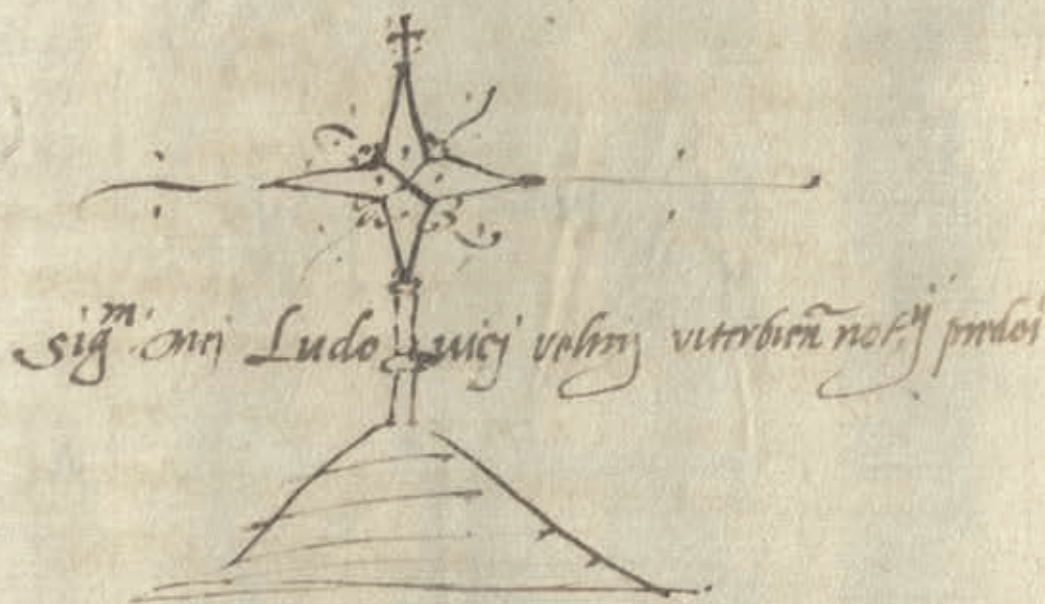 sigᵐ. mei Ludouicj vebtij viterbieñ notʳⁱj predcͥ